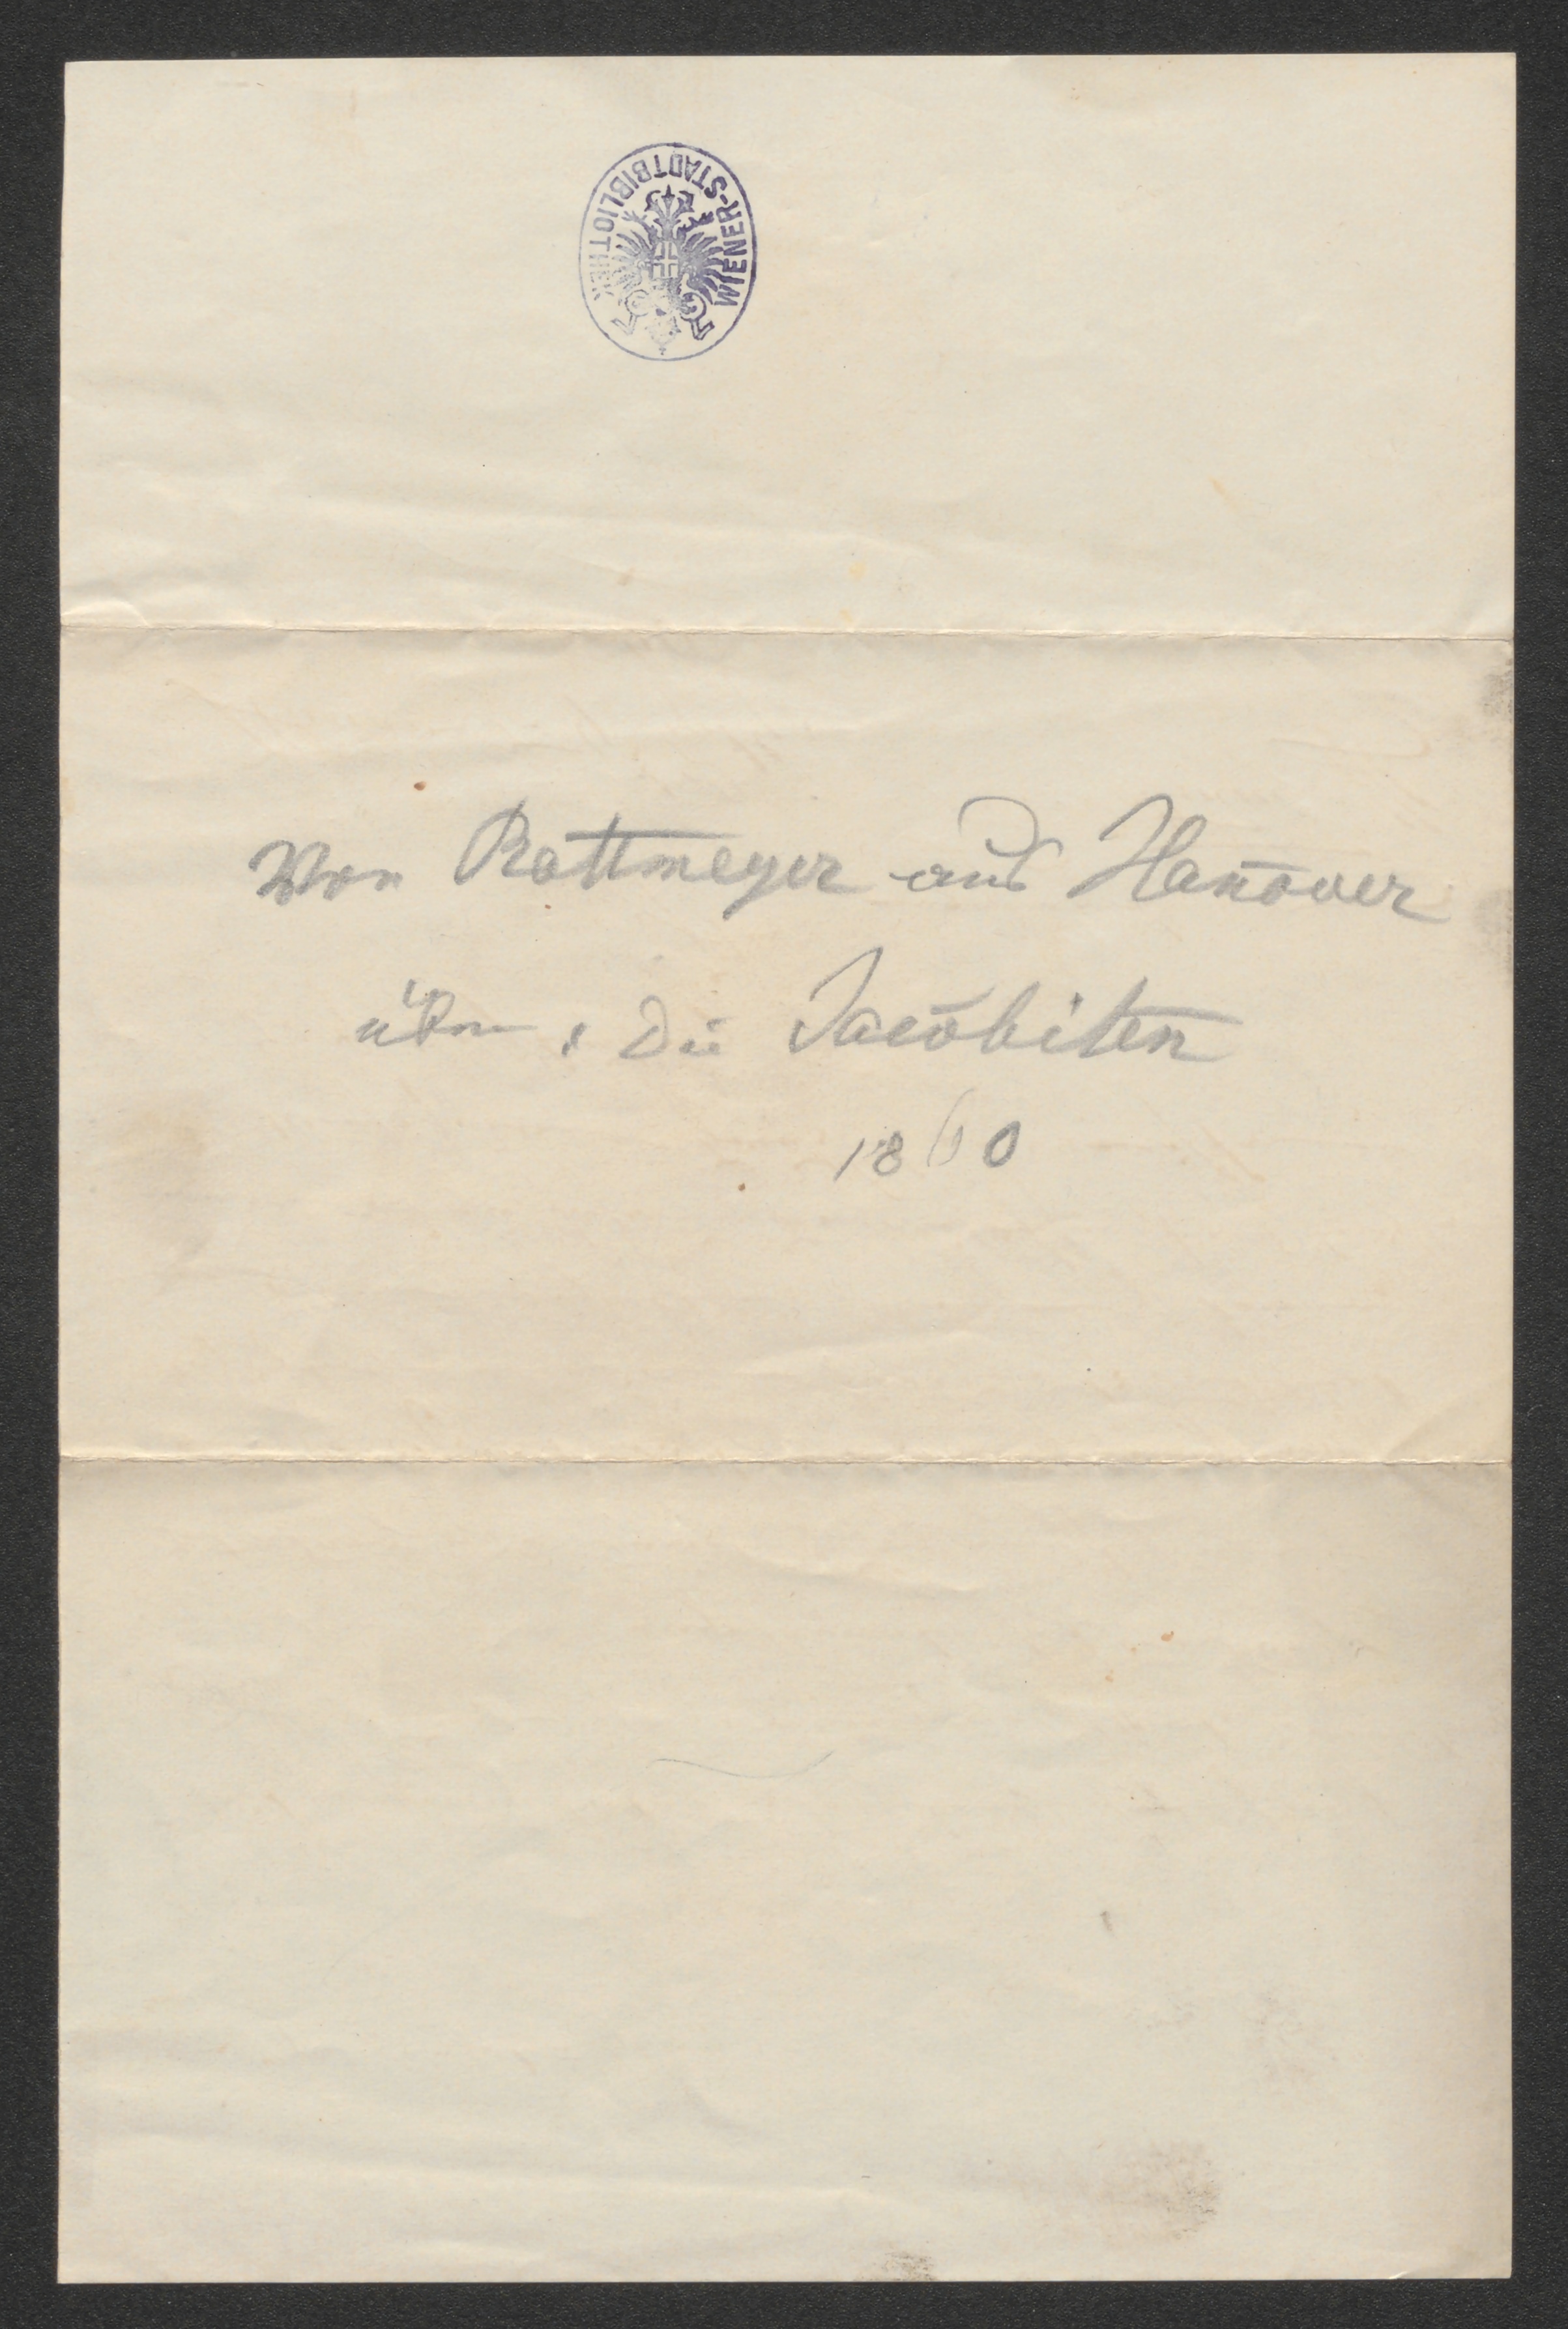 WIENER-STADTBIBLIOTHEK
Von Rottmeyer aus Han̄over
über: die Jacobiten
1860